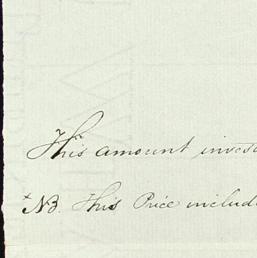 This amount invest
+ NB. This Price includ